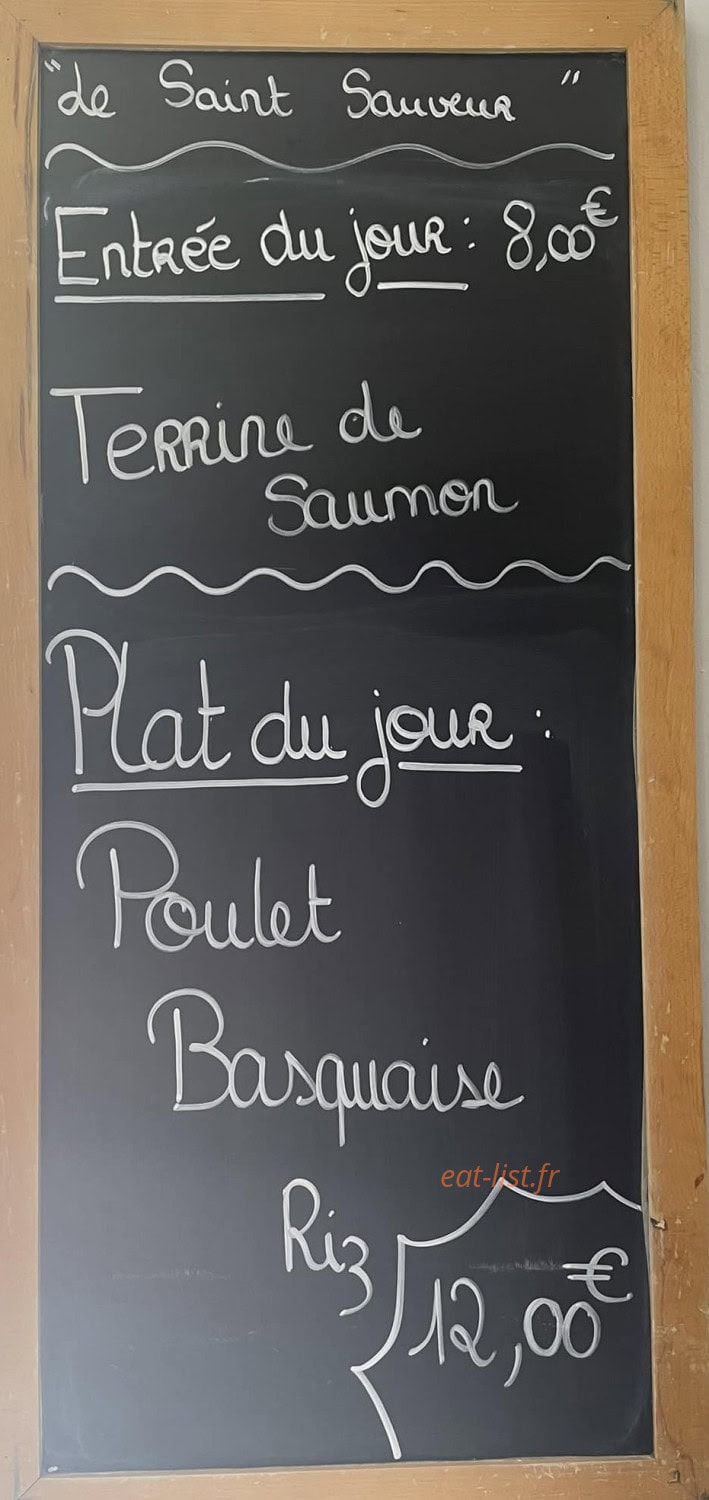 "de Saint Sauveur"
Entrée du jour : 8,00€
Terrine de
Saumon
Plat du jour :
Poulet
Basquaise
eat-list.fr
Riz
12,00€